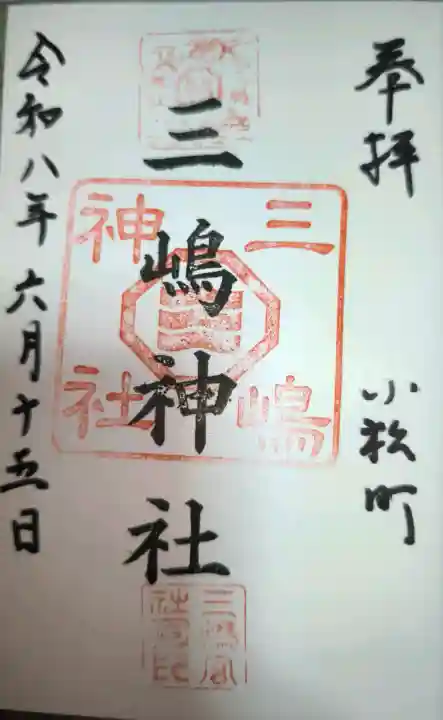 奉拝
小松町
三嶋神社
三嶋
神社
令和八年六月十五日